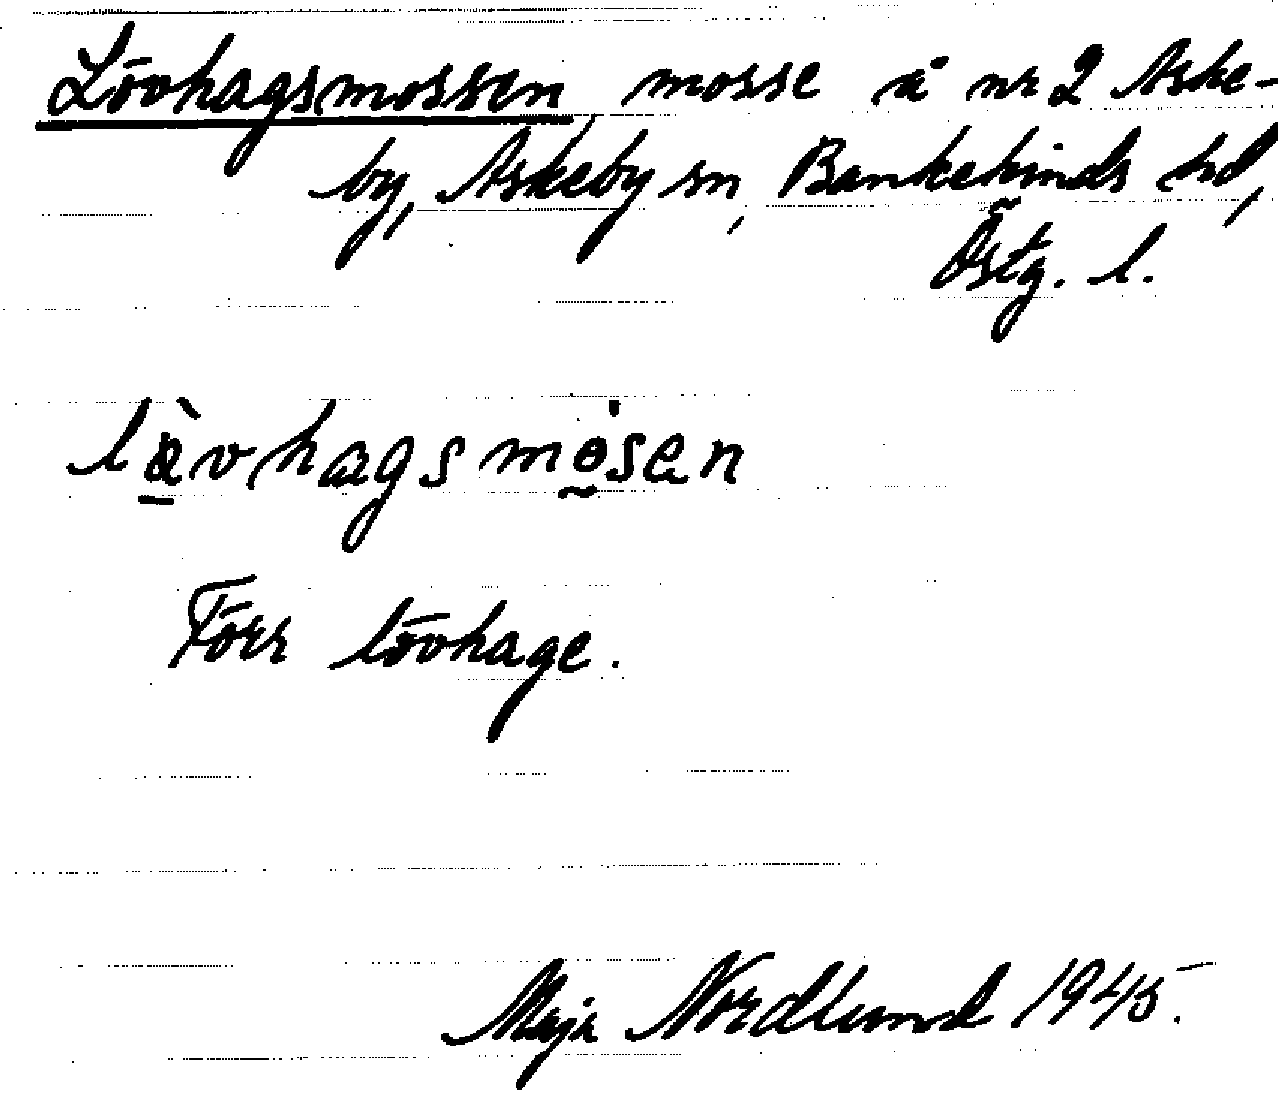 Lövhagsmossen, mosse å nr 2 Aske-
by, Askeby sn, Bankekinds hd,
Östg. l.
lävhagsmosen
Förr lövhage.
Maja Nordlund 1945.